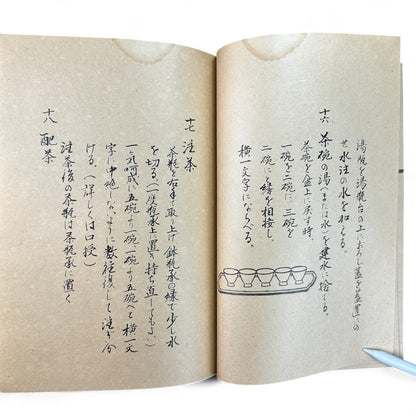 湯瓶を湯瓶台の上におろし蓋を蓋置にのせ
水注の水を加える。
十六 茶碗の湯(または水)を建水に捨てる。
茶碗を盆上に戻す時、
一碗を二碗に、三碗を
二碗にと縁を相接し
横一文字にならべる。
十七 注茶
茶瓶を右手で取り上げ 瓶承の縁で少し水
を切る。(一度瓶承上に置き持ち直してもよい)
一気呵成に五碗と一碗、一碗より五碗へと横一文
字に中絶しないように数往復して注ぎ分
ける。(詳しくは口授)
注茶後の茶瓶は茶瓶承に置く
十八 配茶